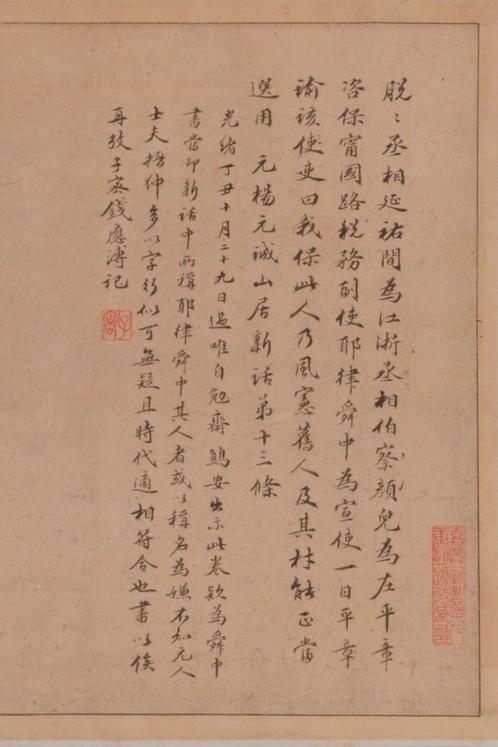 脫〻丞相延祐間為江浙丞相伯察顏兒為左平章
咨保甯國路税務副使耶律舜中為宣使一日平章
諭該使吏曰我保此人乃風憲舊人及其材能正當
選用　元楊元誠山居新話第十三條
光緒丁丑十月二十九日過唯自勉齋鷦安出示此卷欵為舜中
書當即新話中所稱耶律舜中其人者或以稱名為嫌不知元人
士夫搢紳多以字行似可無疑且時代適相符合也書以俟
再攷子宻錢應溥記